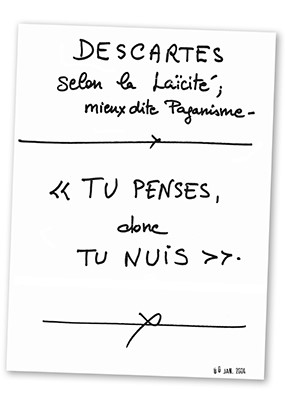 DESCARTES
selon la Laïcité ;
mieux dite Paganisme -
« TU PENSES,
donc
TU NUIS ».